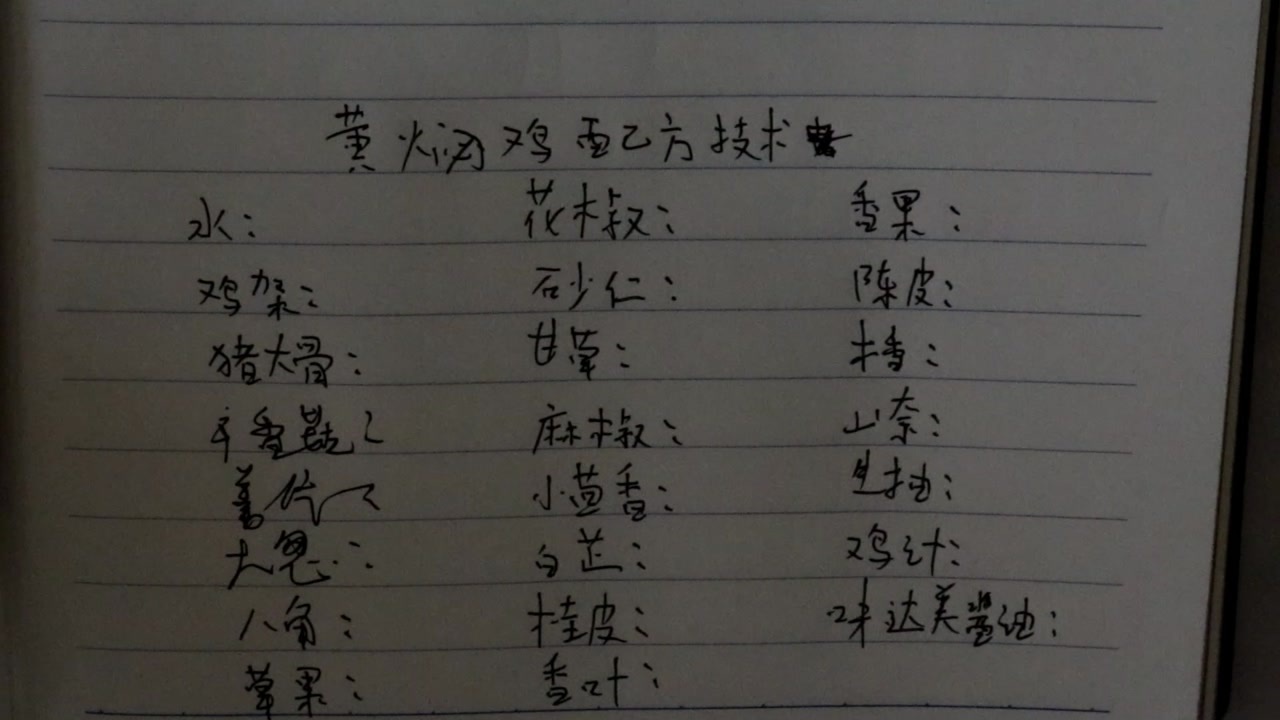 黄焖鸡配方技术
水： 花椒： 香果：
鸡架： 砂仁： 陈皮：
猪大骨： 甘草： 木香：
辛香 麻椒： 山奈：
姜片： 小茴香： 生抽：
大葱： 白芷： 鸡汁：
八角： 桂皮： 味达美酱油：
草果： 香叶：